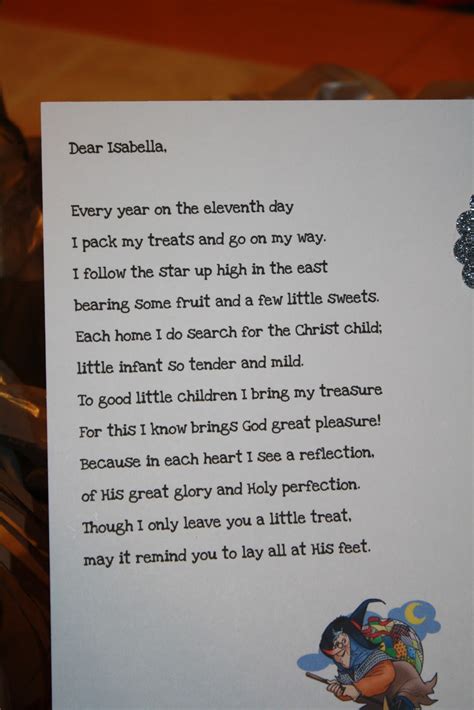 Dear Isabella,
Every year on the eleventh day
I pack my treats and go on my way.
I follow the star up high in the east
bearing some fruit and a few little sweets.
Each home I do search for the Christ child;
little infant so tender and mild.
To good little children I bring my treasure
For this I know brings God great pleasure!
Because in each heart I see a reflection,
of His great glory and Holy perfection.
Though I only leave you a little treat,
may it remind you to lay all at His feet.